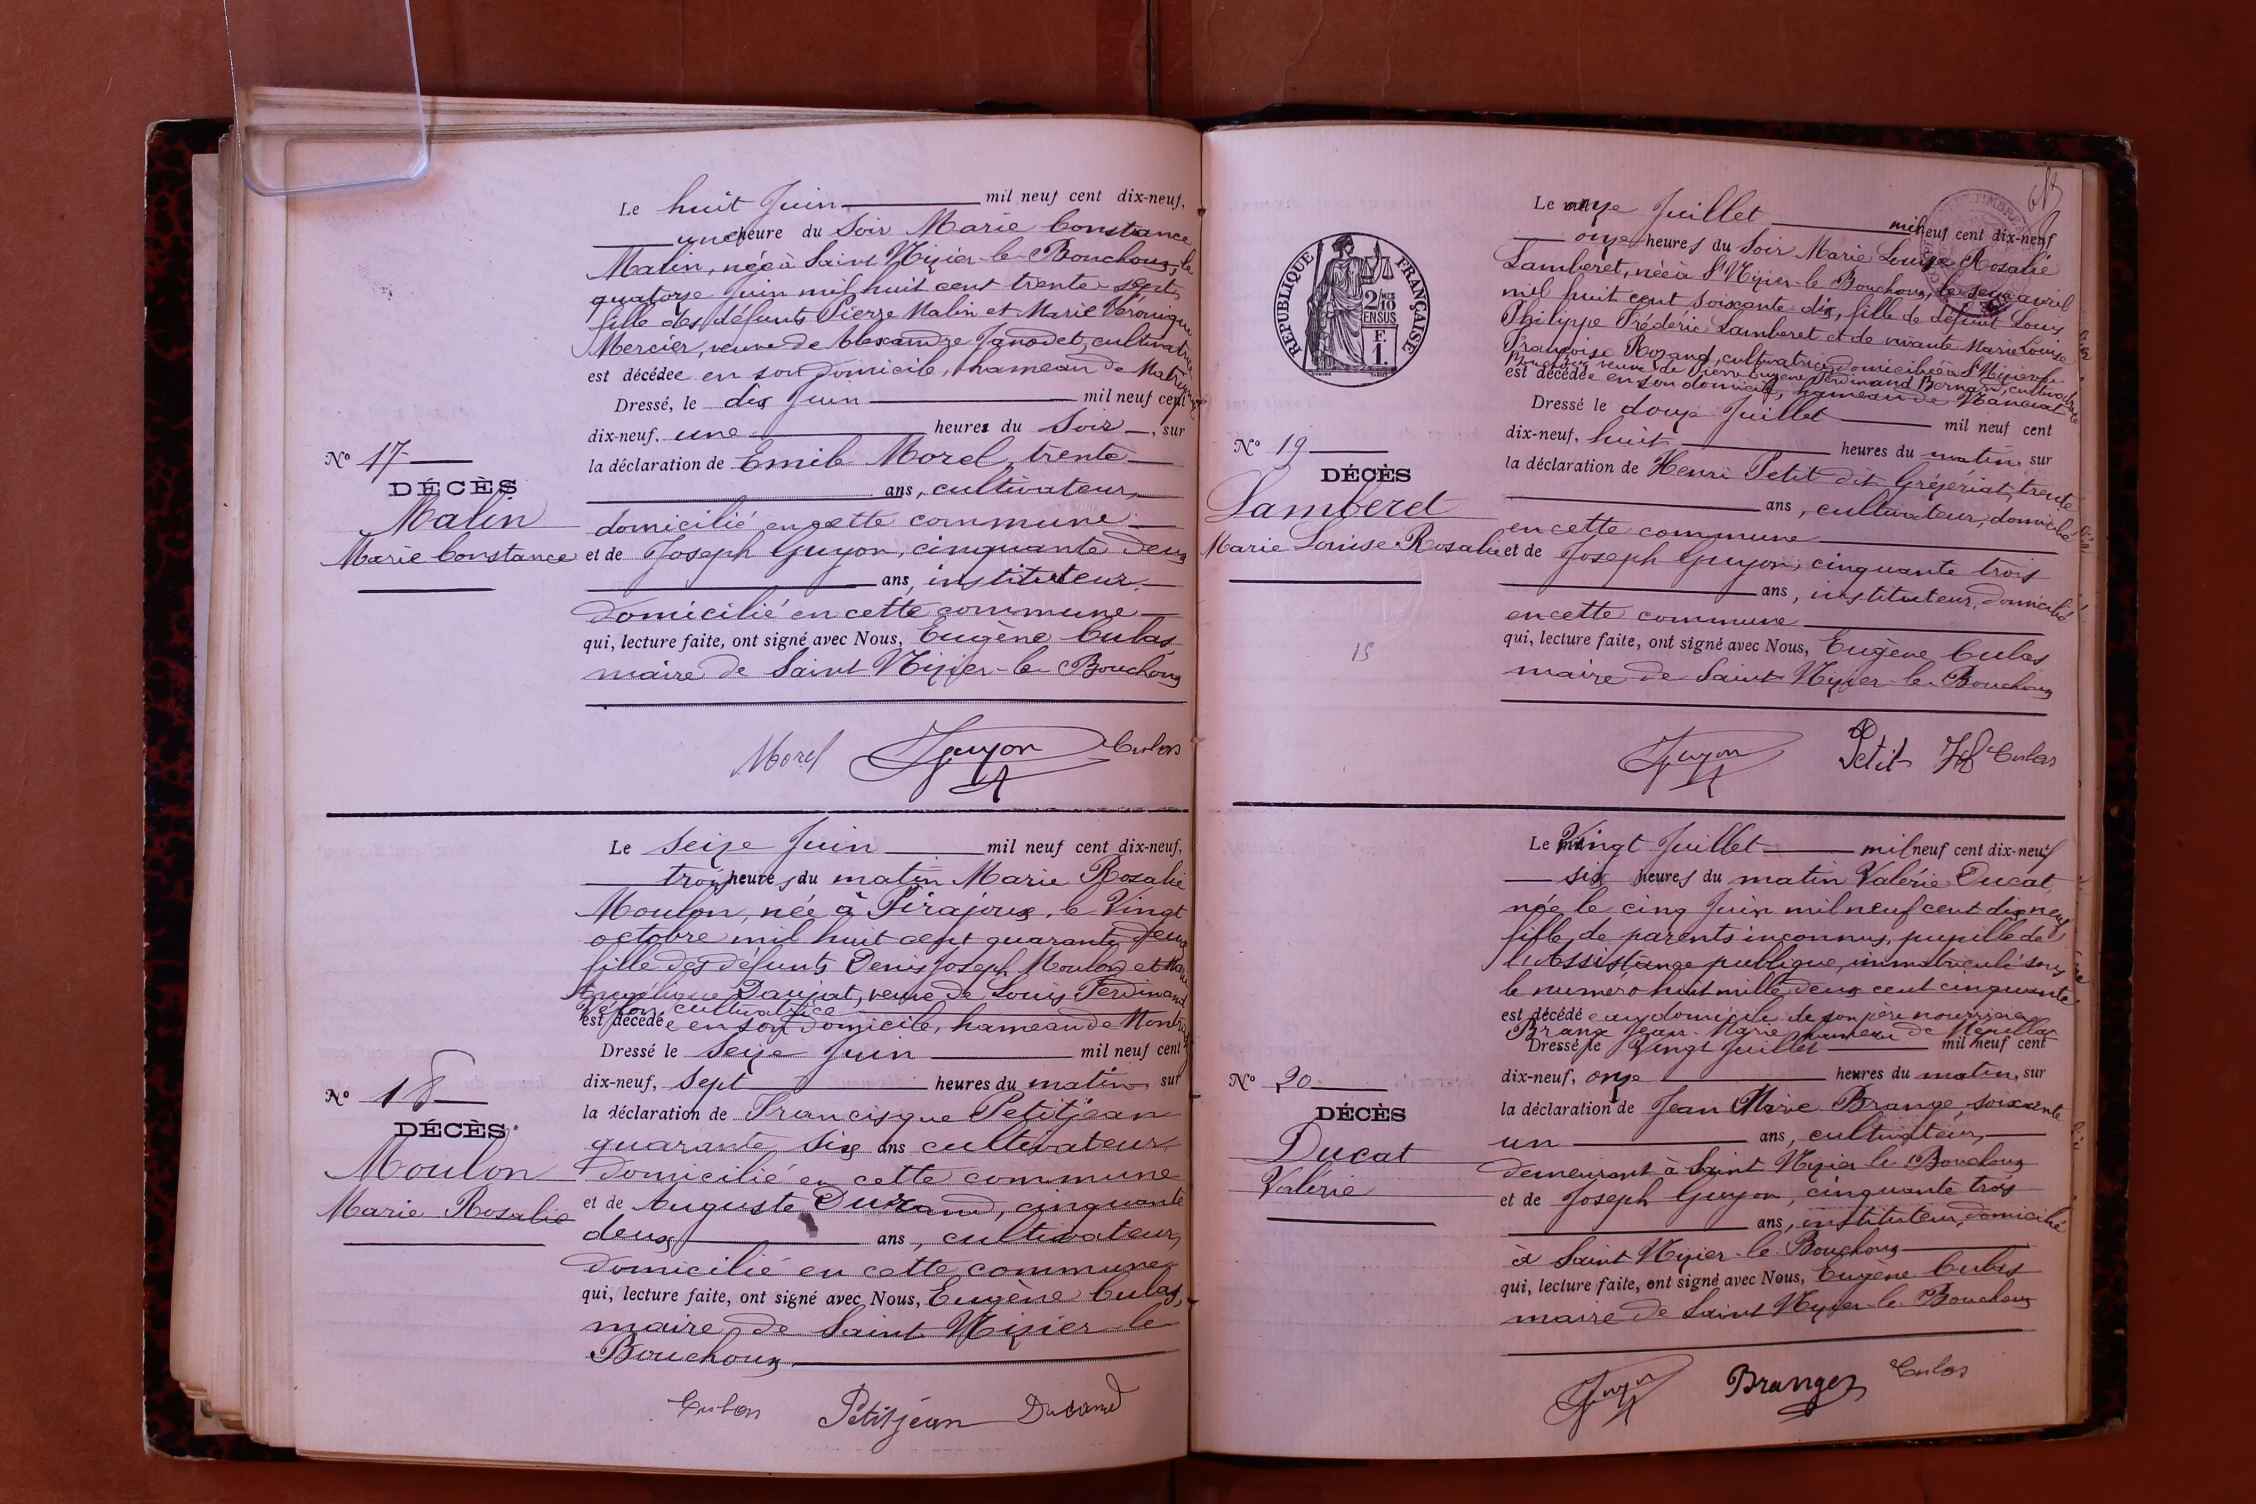 Le huit Juin mil neuf cent dix-neuf,
une heure du Soir Marie Constance
Malin, née à Saint Nizier-le-Bouchoux, le
quatorze Juin mil huit cent trente-sept,
fille des défunts Pierre Malin et Marie Véronique
Mercier, veuve de Alexandre Janodet, cultivatrice
est décédée en son domicile, hameau de
Dressé, le dix Juin mil neuf cent
dix-neuf, une heures du Soir, sur
N° 17
la déclaration de Emile Morel, trente
DÉCÈS
ans, cultivateur,
Malin
domicilié en cette commune
Marie Constance
et de Joseph Guyon, cinquante deux
ans, instituteur,
domicilié en cette commune
qui, lecture faite, ont signé avec Nous, Eugène Culas
maire de Saint Nizier-le-Bouchoux
Morel Guyon Culas
Le Seize Juin mil neuf cent dix-neuf,
trois heures du matin Marie Rosalie
Moulon, née à Pirajoux, le Vingt
octobre mil huit cent quarante deux
fille des défunts Denis Joseph Moulon et Marie
Angélique Daujat, veuve de Louis Ferdinand
cultivatrice
est décédée en son domicile, hameau de
Dressé le Seize Juin mil neuf cent
dix-neuf, Sept heures du matin, sur
N° 18
la déclaration de Francisque Petitjean
DÉCÈS
quarante six ans cultivateur,
Moulon
domicilié en cette commune
Marie Rosalie
et de Auguste Durand, cinquante
deux ans, cultivateur,
domicilié en cette commune
qui, lecture faite, ont signé avec Nous, Eugène Culas,
maire de Saint Nizier-le
Bouchoux
Culas Petitjean Durand
RÉPUBLIQUE FRANÇAISE
2/10 EN SUS
F. 1.
Le onze Juillet mil neuf cent dix-neuf
onze heures du Soir Marie Louise Rosalie
Lamberet, née à St Nizier-le-Bouchoux, le seize avril
mil huit cent soixante-dix, fille de défunt Louis
Philippe Frédéric Lamberet et de vivante Marie Louise
Françoise Rozand, cultivatrice, domiciliée à St Nizier-le
Bouchoux veuve de Pierre Eugène Ferdinand Bernard, cultivatrice
est décédée en son domicile, hameau de Mancuat
Dressé le douze Juillet mil neuf cent
dix-neuf, huit heures du matin, sur
N° 19
la déclaration de Henri Petit dit Gréjériat, trente
DÉCÈS
ans, cultivateur, domicilié
Lamberet
en cette commune
Marie Louise Rosalie
et de Joseph Guyon, cinquante trois
ans, instituteur, domicilié
en cette commune
qui, lecture faite, ont signé avec Nous, Eugène Culas
15
maire de Saint Nizier-le-Bouchoux
Guyon Petit Culas
Le Vingt Juillet mil neuf cent dix-neuf
six heures du matin Valérie Ducat
née le cinq Juin mil neuf cent dix neuf
fille de parents inconnus, pupille de
l'Assistance publique, immatriculé sous
le numéro huit mille deux cent cinquante
est décédée au domicile de son père nourricier
Brange Jean-Marie hameau de
Dressé le Vingt Juillet mil neuf cent
dix-neuf, onze heures du matin, sur
N° 20
la déclaration de Jean Marie Brange, soixante
DÉCÈS
un ans, cultivateur,
Ducat
demeurant à Saint Nizier le Bouchoux
Valérie
et de Joseph Guyon, cinquante trois
ans, instituteur, domicilié
à Saint Nizier-le-Bouchoux
qui, lecture faite, ont signé avec Nous, Eugène Culas
maire de Saint Nizier-le-Bouchoux
Guyon Branges Culas